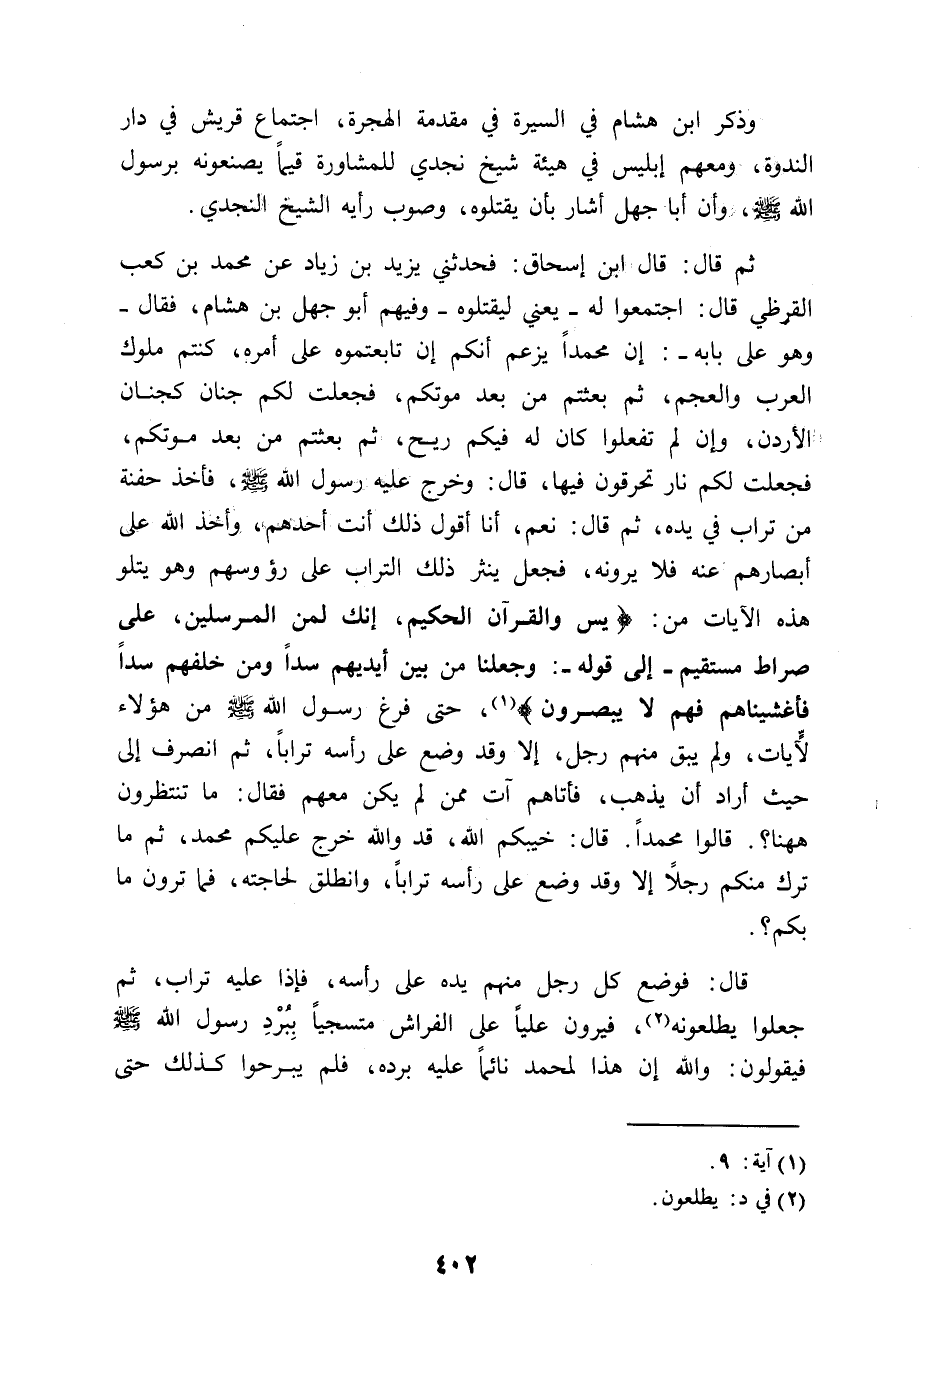 وذكر ابن هشام في السيرة في مقدمة الهجرة، اجتماع قريش في دار
الندوة، ومعهم إبليس في هيئة شيخ نجدي للمشاورة قيماً يصنعونه برسول
الله ﷺ، وأن أبا جهل أشار بأن يقتلوه، وصوب رأيه الشيخ النجدي.
ثم قال: قال ابن إسحاق: فحدثني يزيد بن زياد عن محمد بن كعب
القرظي قال: اجتمعوا له ـ يعني ليقتلوه ـ وفيهم أبو جهل بن هشام، فقال ـ
وهو على بابه ـ: إن محمداً يزعم أنكم إن تابعتموه على أمره، كنتم ملوك
العرب والعجم، ثم بعثتم من بعد موتكم، فجعلت لكم جنان كجنان
الأردن، وإن لم تفعلوا كان له فيكم ريح، ثم بعثتم من بعد موتكم،
فجعلت لكم نار تحرقون فيها، قال: وخرج عليه رسول الله ﷺ، فأخذ حفنة
من تراب في يده، ثم قال: نعم، أنا أقول ذلك أنت أحدهم، وأخذ الله على
أبصارهم عنه فلا يرونه، فجعل ينثر ذلك التراب على رؤوسهم وهو يتلو
هذه الآيات من: ﴿يس والقرآن الحكيم، إنك لمن المرسلين، على
صراط مستقيم ـ إلى قوله ـ: وجعلنا من بين أيديهم سداً ومن خلفهم سداً
فأغشيناهم فهم لا يبصرون﴾(١)، حتى فرغ رسول الله ﷺ من هؤلاء
لآيات، ولم يبق منهم رجل، إلا وقد وضع على رأسه تراباً، ثم انصرف إلى
حيث أراد أن يذهب، فأتاهم آت ممن لم يكن معهم فقال: ما تنتظرون
ههنا؟. قالوا محمداً. قال: خيبكم الله، قد والله خرج عليكم محمد، ثم ما
ترك منكم رجلاً إلا وقد وضع على رأسه تراباً، وانطلق لحاجته، فما ترون ما
بكم؟.
قال: فوضع كل رجل منهم يده على رأسه، فإذا عليه تراب، ثم
جعلوا يطلعونه(٢)، فيرون علياً على الفراش متسجياً بِبُرْدِ رسول الله ﷺ
فيقولون: والله إن هذا لمحمد نائماً عليه برده، فلم يبرحوا كذلك حتى
(١) آية: ٩.
(٢) في د: يطلعون.
٤٠٢